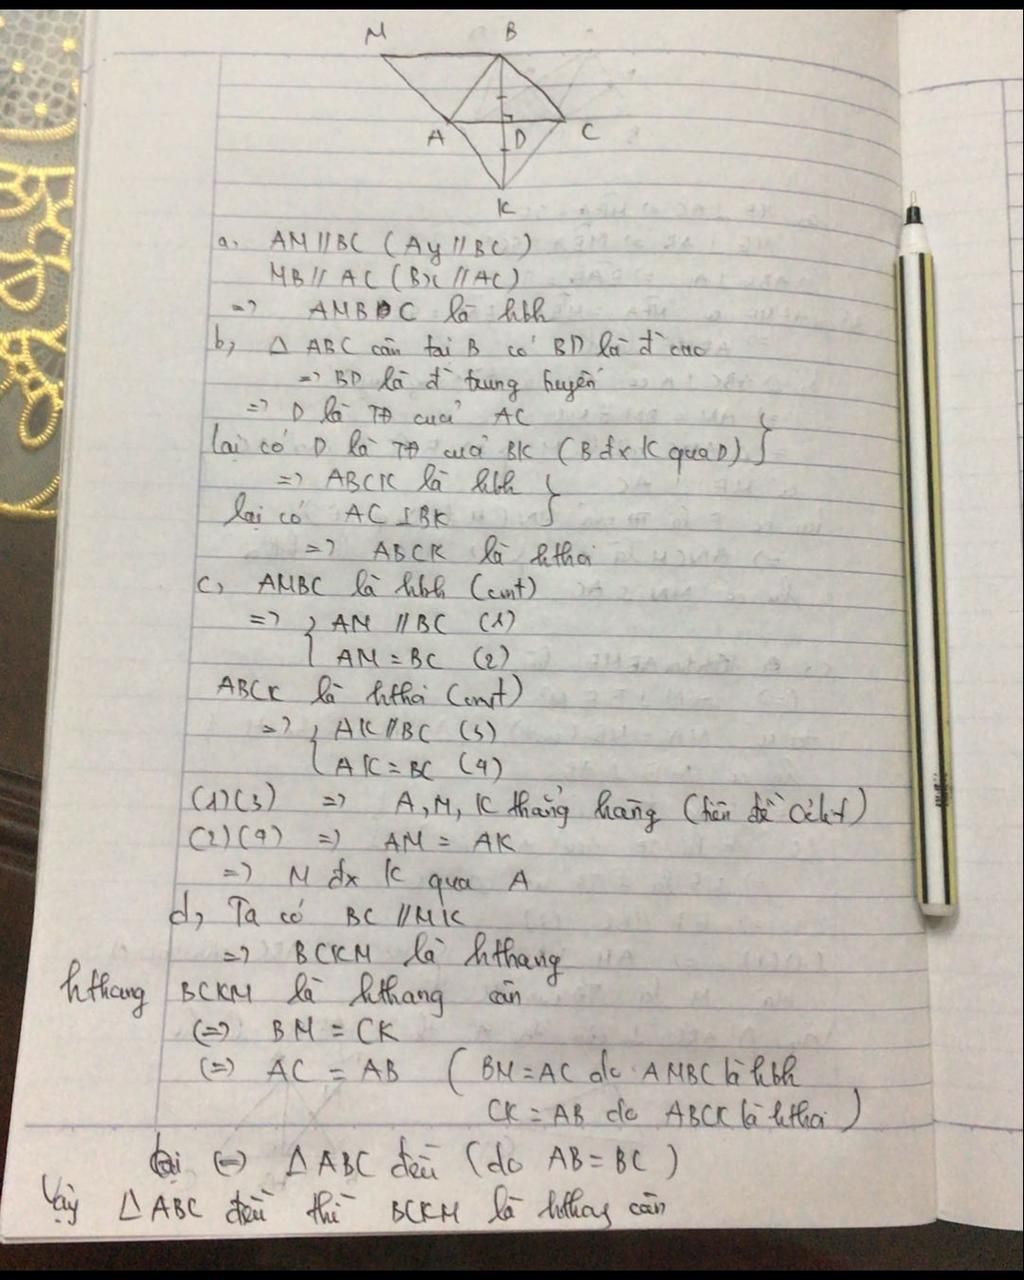 M B
A D C
K
a, AM // BC ( Ay // BC )
MB // AC ( Bx // AC )
=> AMBC là hbh
b, Δ ABC cân tại B có BD là đ cao
=> BD là đ trung tuyến
=> D là TĐ cuả AC
lại có D là TĐ cuả BK ( B đx K qua D )
=> ABCK là hbh
lại có AC ⊥ BK
=> ABCK là hthoi
c, AMBC là hbh (cmt)
=> { AM // BC (1)
AM = BC (2)
ABCK là hthoi (cmt)
=> { AK // BC (3)
AK = BC (4)
(1)(3) => A, M, K thẳng hàng (tiên đề Ơclit)
(2)(4) => AM = AK
=> M đx K qua A
d, Ta có BC // MK
=> BCKM là hthang
hthang BCKM là hthang cân
(=) BM = CK
(=) AC = AB ( BM = AC do AMBC là hbh
CK = AB do ABCK là hthoi )
(=) Δ ABC đều (do AB = BC )
Vậy Δ ABC đều thì BCKM là hthang cân